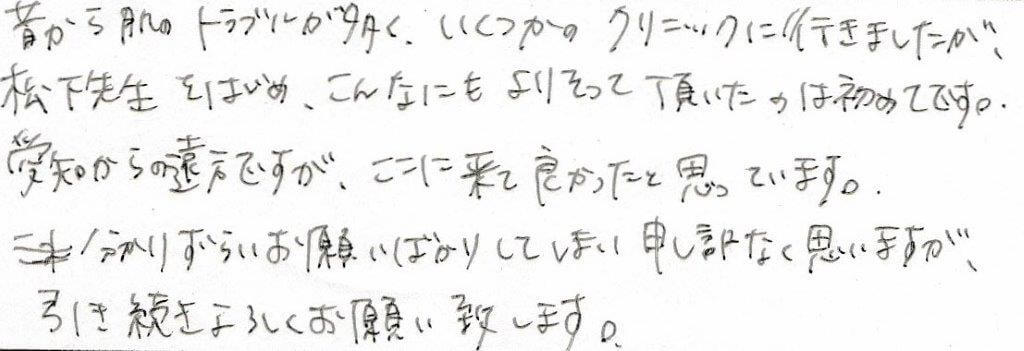 昔から肌のトラブルが多く、いくつかのクリニックに行きましたが、
松下先生をはじめ、こんなにもよりそって頂いたのは初めてです。
愛知からの遠方ですが、ここに来て良かったと思っています。
分かりずらいお願いばかりしてしまい申し訳なく思いますが、
引き続きよろしくお願い致します。